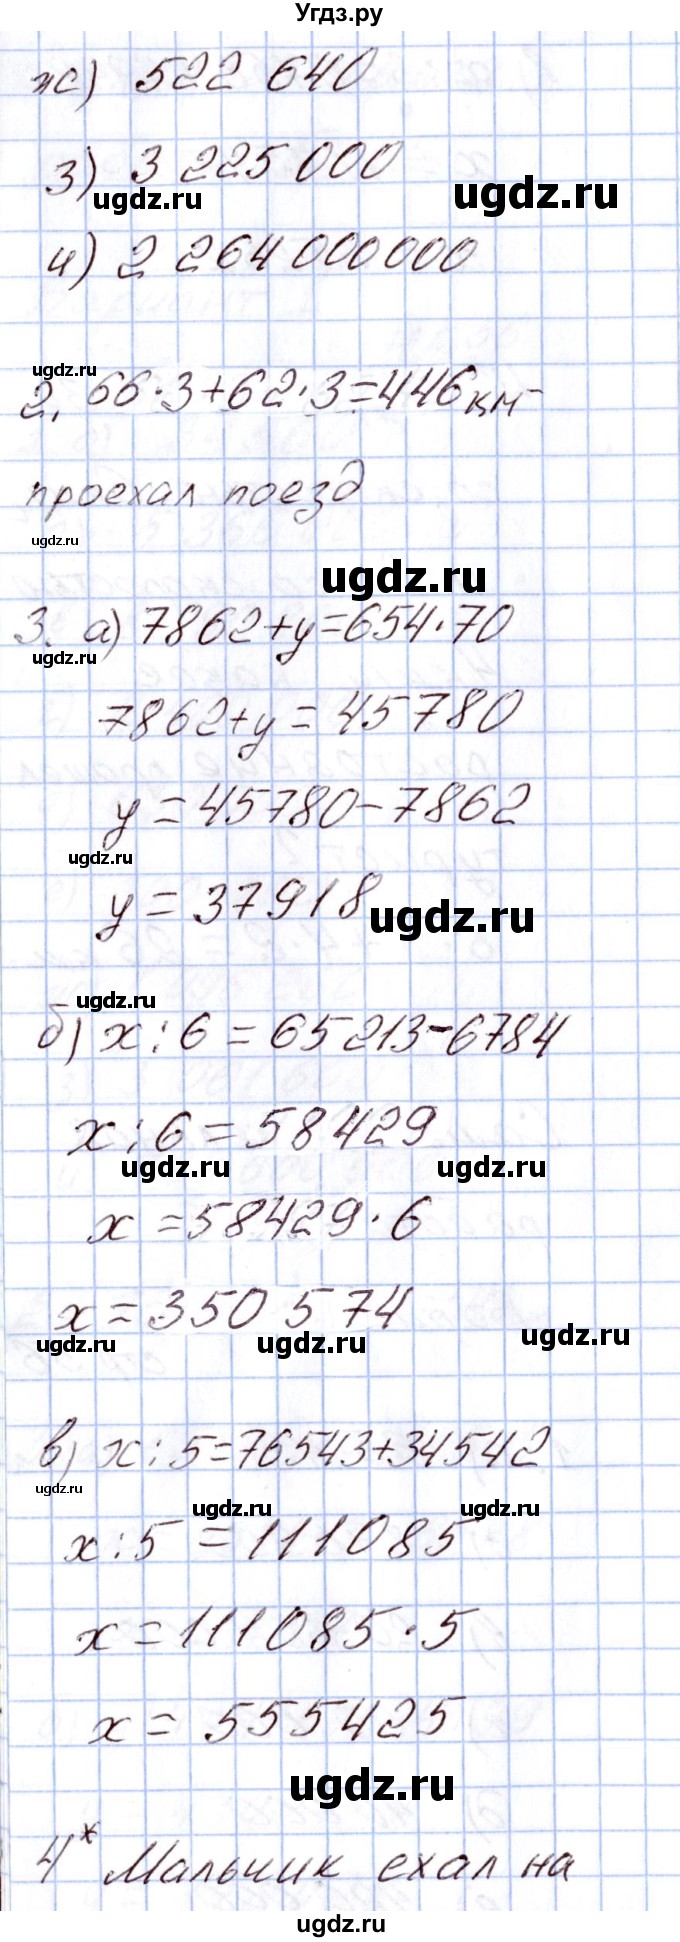 Угдз.ру
ж) 522 640
з) 3 225 000
ugdz.ru ugdz.ru
и) 2 264 000 000
ugdz.ru
2. 66·3+62·3=446км-
проехал поезд
ugdz.ru
ugdz.ru
3. а) 7862+y=654·70
ugdz.ru
7862+y=45780
y=45780-7862
ugdz.ru
y=37918
ugdz.ru
ugdz.ru
б) x:6=65213-6784
x:6=58429
ugdz.ru ugdz.ru
x=58429·6
x=350 574
ugdz.ru ugdz.ru ugdz.ru
в) x:5=76543+34542
ugdz.ru
ugdz.ru ugdz.ru
x:5=111085
x=111085·5
x=555425
ugdz.ru
4* Мальчик ехал на
ugdz.ru